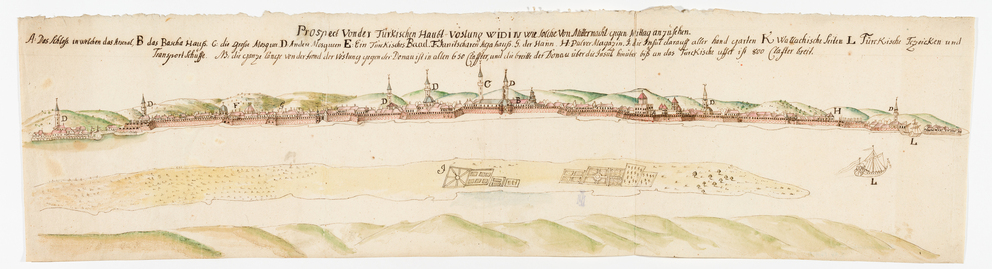 Prospect Von der Türkischen Haubt-Vöstung WIDIN wie solche Von Mitternacht gegen Mittag anzusehen.
A. Das Schloß in welchen das Arsenal, B das Bascha Hauß. C. die große Mosquee D. Andere Mosqueen E. Ein Türkisches Baad. F. Janitscharen Aga hauß. G. der Hann. H Pulver Magazin, I. die Insul darauff aller hand garten K Wallachische Seiten L Türkische und
Transport Schiffe. NB. die gantze länge von der front der Vöstung gegen der Donau ist in allen 650 Claffter, und die breitte der Donau über die Insul hinüber biß an das Türkische uffer ist 800 Claffter breit.
D D F D D C D B D H D L
I
L